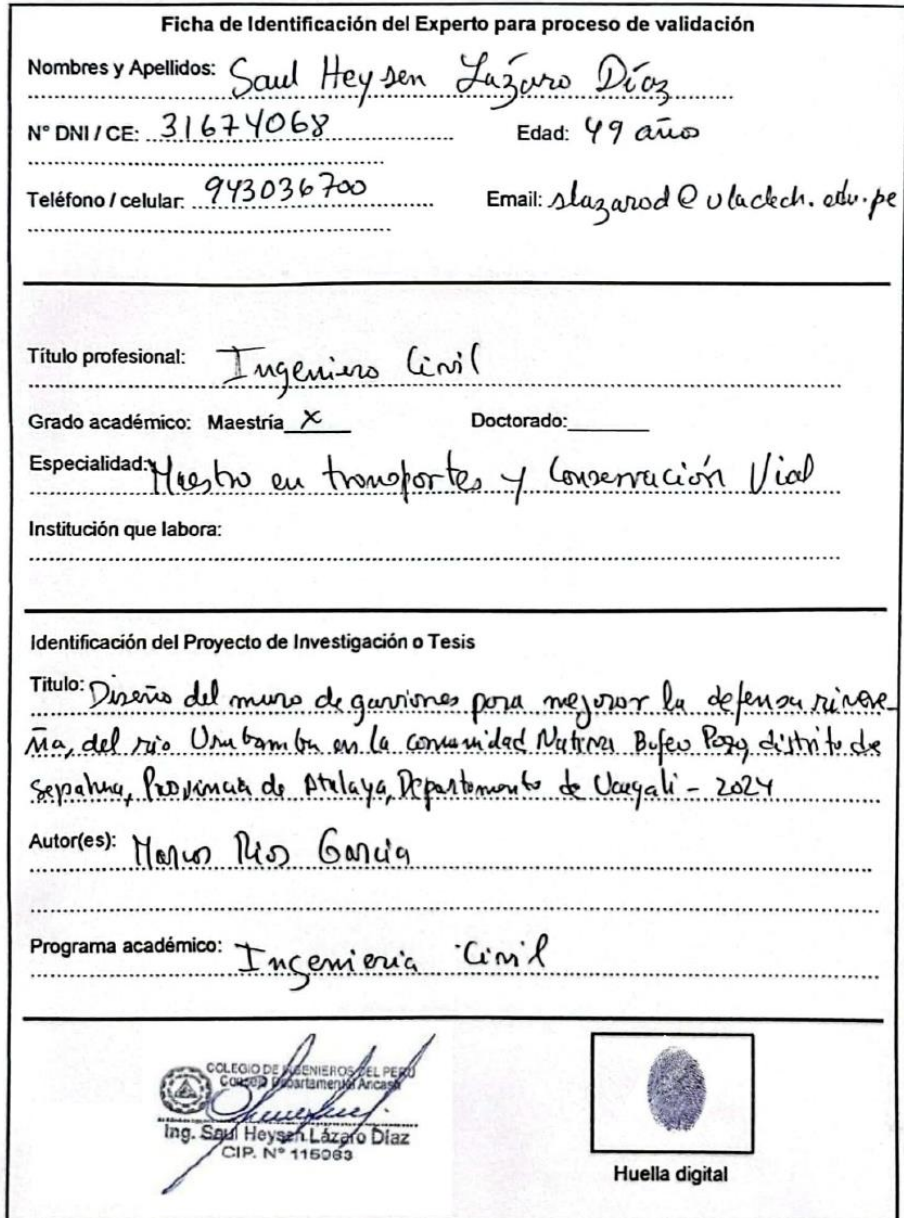 Ficha de Identificación del Experto para proceso de validación
Nombres y Apellidos: Saul Heysen Lázaro Díaz
N° DNI / CE: 31674068 Edad: 49 años
Teléfono / celular: 943036700 Email: slazarod@uladech.edu.pe
Título profesional: Ingeniero Civil
Grado académico: Maestría X Doctorado:
Especialidad: Maestro en transportes y Conservación Vial
Institución que labora:
Identificación del Proyecto de Investigación o Tesis
Titulo: Diseño del muro de gaviones para mejorar la defensa rivere-
ña, del rio Urubamba en la comunidad Nativa Bufeo Pozo, distrito de
Sepahua, Provincia de Atalaya, Departamento de Ucayali - 2024
Autor(es): Marcos Rios Garcia
Programa académico: Ingenieria Civil
COLEGIO DE INGENIEROS DEL PERÚ
Consejo Departamental Ancash
Ing. Saul Heysen Lázaro Díaz
CIP. N° 115063
Huella digital